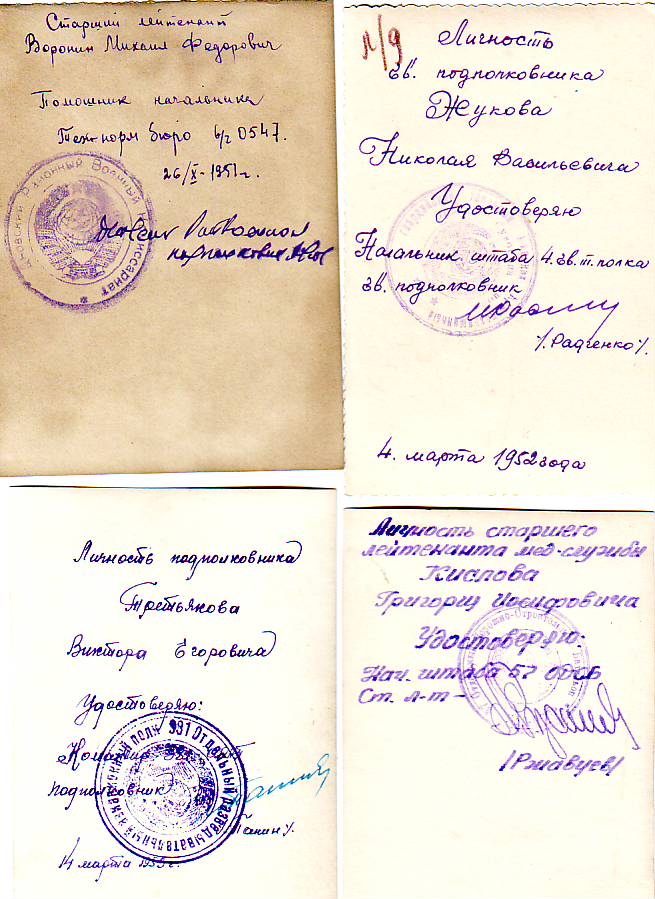 Старший лейтенант
Воронин Михаил Федорович
Помошник начальника
Тех-норм бюро в/г 0547.
26/X-1951 г.
Районный Военный Комиссариат
л/д
Личность
гв. подполковника
Жукова
Николая Васильевича
Удостоверяю
Начальник штаба 4 гв. т. полка
гв. подполковник
/. Радченко /.
4. марта 1952 года
Личность подполковника
Третьякова
Виктора Егоровича
Удостоверяю:
Командир
подполковник
Панин /.
14 марта
931 Отдельный разведывательный авиационный полк
Личность старшего
лейтенанта мед-службы
Кислова
Григория Иосифовича
Удостоверяю:
Нач. штаба 57 ОДСБ
Ст. л-т -
/Ржавуев/